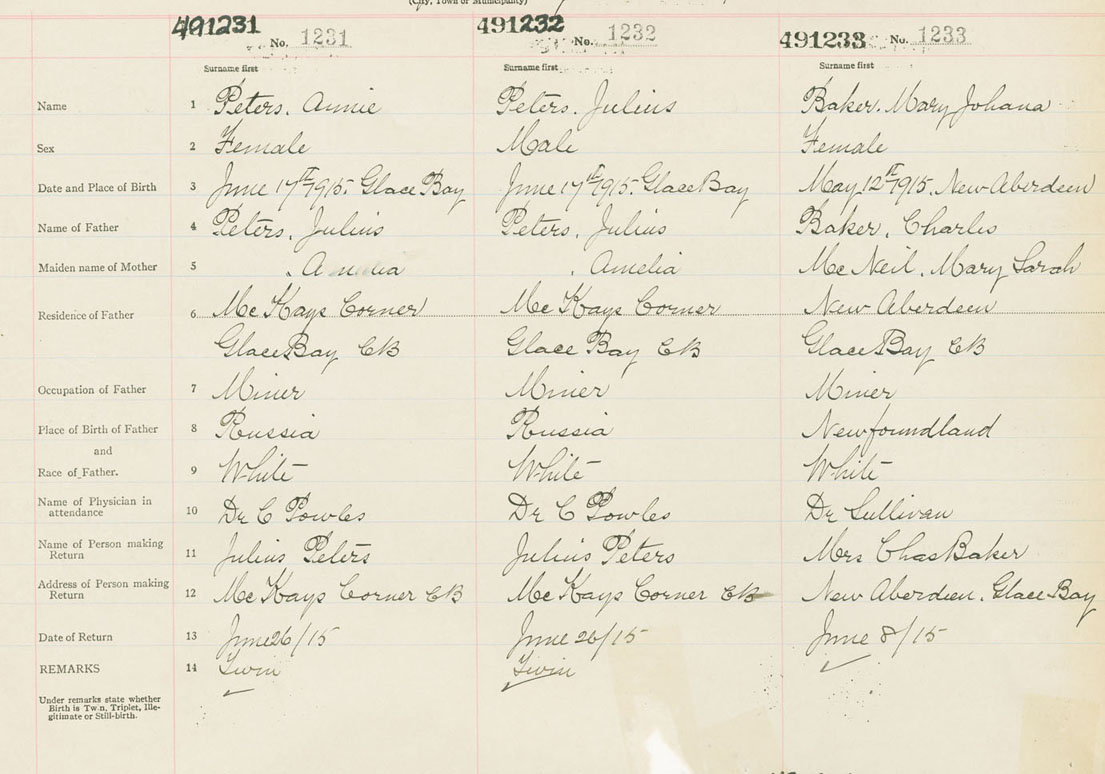 (City, Town or Municipality)
491231 No. 1231 491232 No. 1232 491233 No. 1233
Surname first Surname first Surname first
Name 1 Peters. Annie Peters. Julius Baker. Mary Johana
Sex 2 Female Male Female
Date and Place of Birth 3 June 17th 1915. Glace Bay June 17th 1915. Glace Bay May 12th 1915. New Aberdeen
Name of Father 4 Peters. Julius Peters. Julius Baker, Charles
Maiden name of Mother 5 . Amelia . Amelia Mc Neil. Mary Sarah
Residence of Father 6 Mc Kays Corner Mc Kays Corner New Aberdeen
Glace Bay CB Glace Bay CB Glace Bay CB
Occupation of Father 7 Miner Miner Miner
Place of Birth of Father 8 Russia Russia Newfoundland
and
Race of Father. 9 White White White
Name of Physician in
attendance 10 Dr C Powles Dr C Powles Dr Sullivan
Name of Person making
Return 11 Julius Peters Julius Peters Mrs Chas Baker
Address of Person making
Return 12 Mc Kays Corner CB Mc Kays Corner CB New Aberdeen. Glace Bay
Date of Return 13 June 26/15 June 26/15 June 8/15
REMARKS 14 Twin Twin
Under remarks state whether
Birth is Twin, Triplet, Ille-
gitimate or Still-birth.